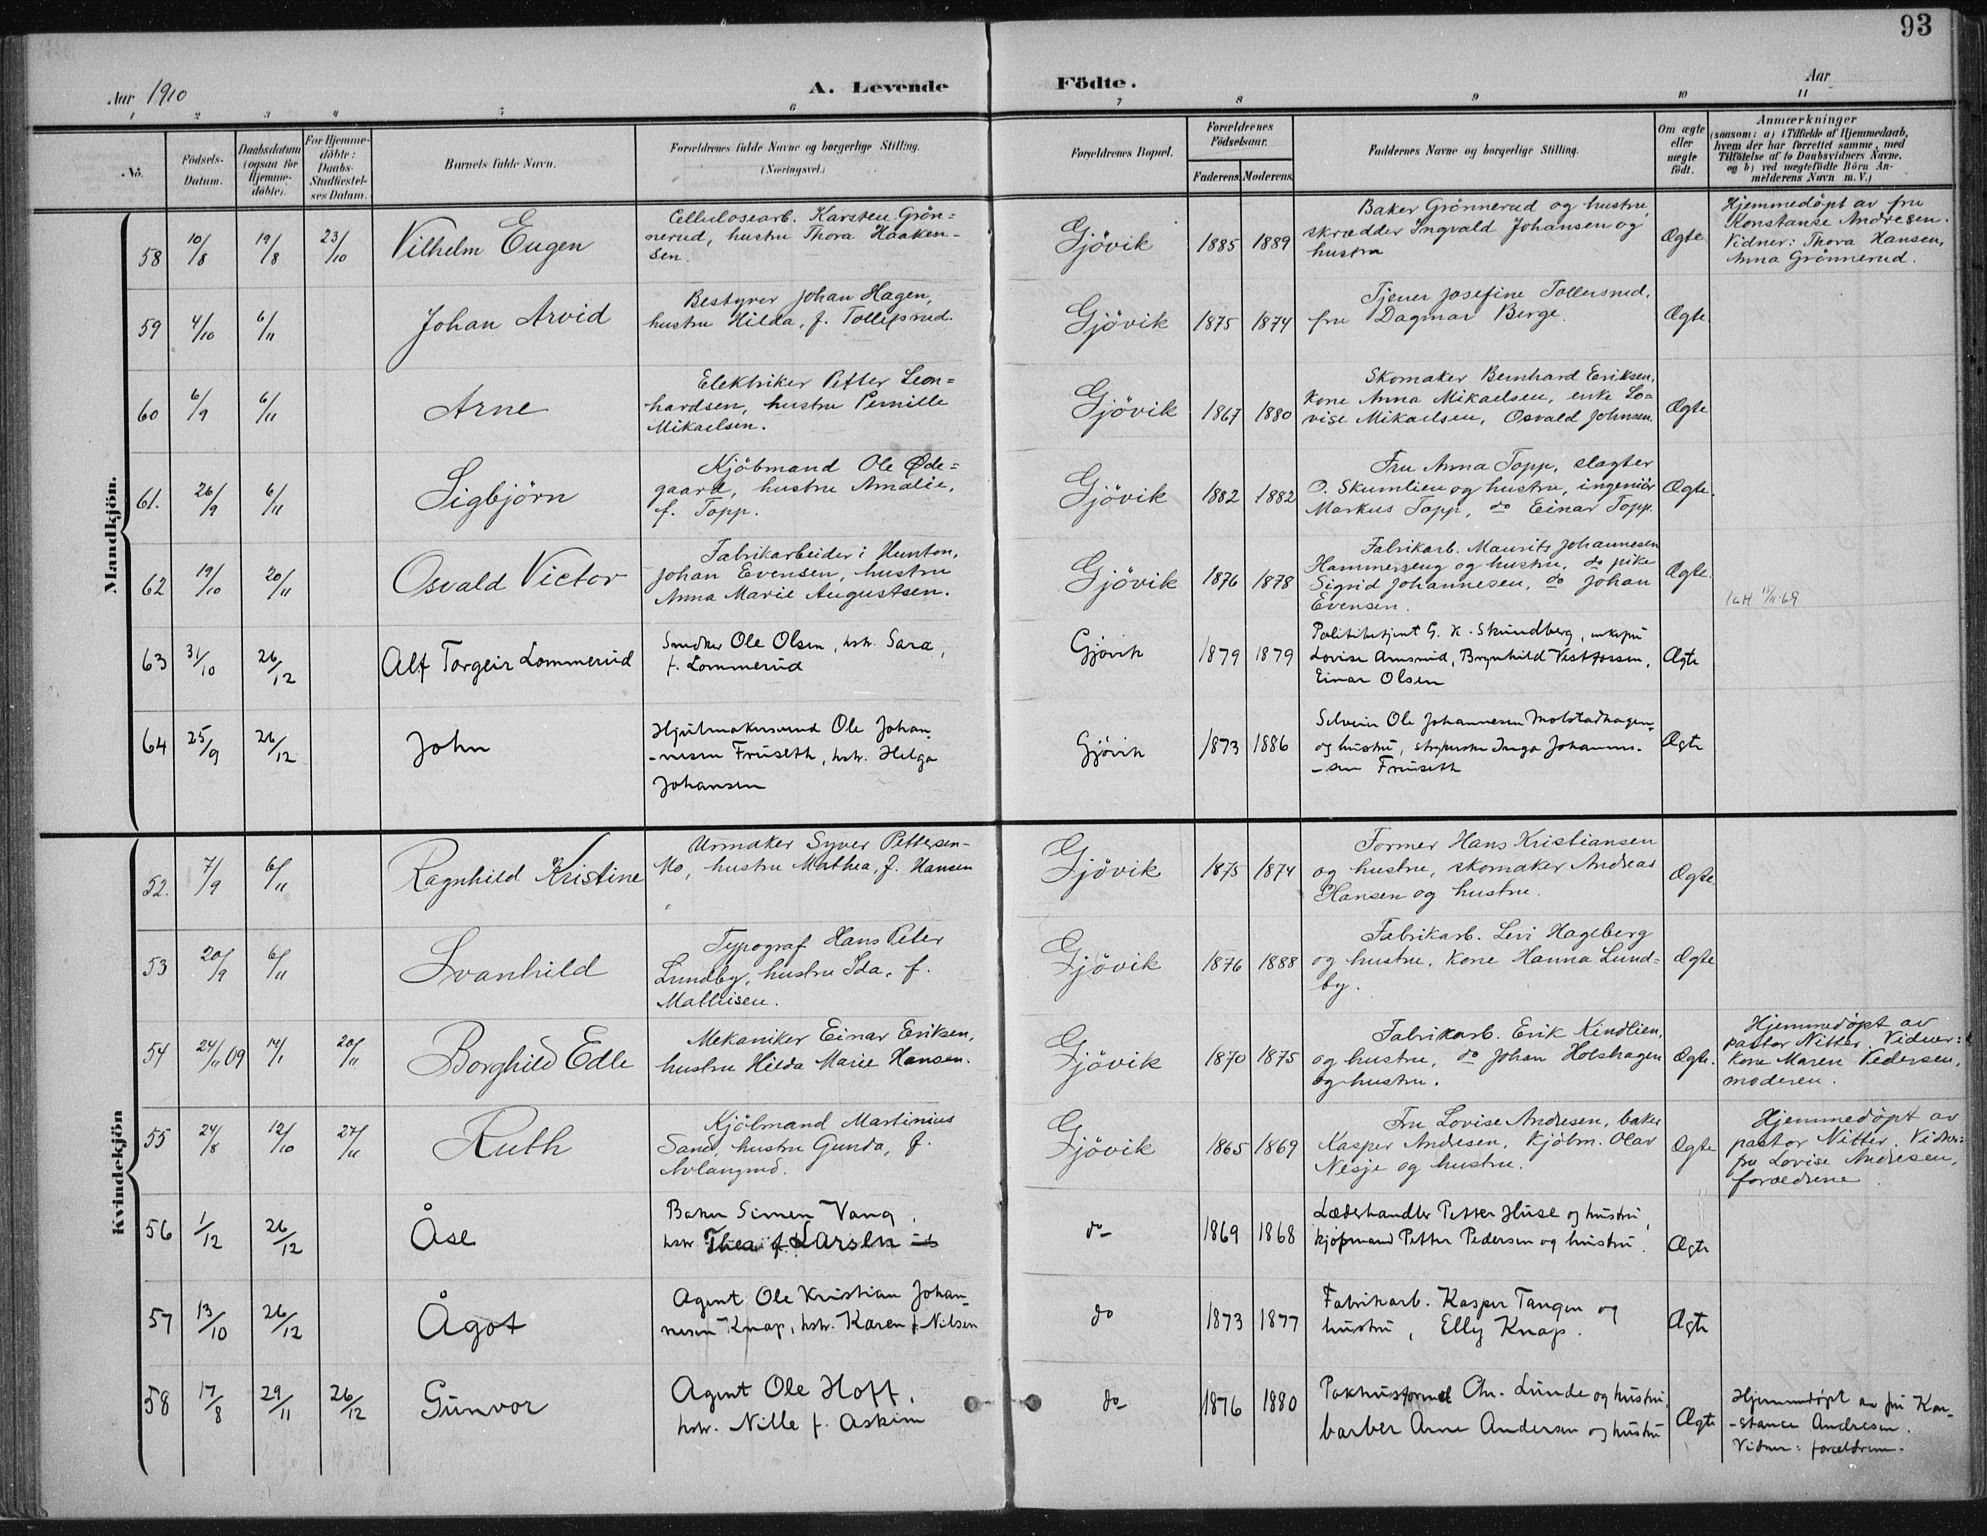 93
Aar 1910
A. Levende
Födte.
Aar
1 2 3 4 5 6 7 8 9 10 11
No.
Födsels-
Datum.
Daabsdatum
(ogsaa for
Hjemme-
döbte).
For Hjemme-
döbte:
Daabs-
Stadfæstel-
ses Datum.
Barnets fulde Navn.
Forældrenes fulde Navne og borgerlige Stilling.
(Næringsvei.)
Forældrenes Bopæl.
Forældrenes
Födselsaar.
Faderens. Moderens.
Faddernes Navne og borgerlige Stilling.
Om ægte
eller
uægte
födt.
Anmærkninger
(saasom: a) i Tilfælde af Hjemmedaab,
hvem der har forrettet samme, med
Tilföielse af to Daabsvidners Navne,
og b) ved uægtefödte Börn An-
melderens Navn m. V.)
Mandkjön.
58 10/8 19/8 23/10 Vilhelm Eugen
Cellulosearb. Karsten Grön=
nerud, hustru Thora Haaken-
sen.
Gjövik 1885 1889
Baker Grönnerud og hustru,
skrædder Ingvald Johansen og
hustru
Ægte
Hjemmedöpt av fru
Konstanse Andresen.
Vidner: Thora Hansen,
Anna Grönnerud.
59 4/10 6/11 Johan Arvid
Bestyrer Johan Hagen,
hustru Hilda, f. Tollefsrud.
Gjövik 1875 1874
Tjener Josefine Tollersrud,
fru Dagmar Berge.
Ægte
60 6/9 6/11 Arne
Elektriker Petter Leon=
hardsen, hustru Pernille
Mikaelsen.
Gjövik 1867 1880
Skomaker Bernhard Eriksen,
kone Anna Mikaelsen, enke Lo=
vise Mikaelsen, Osvald Johnsen.
Ægte
61. 26/9 6/11 Sigbjörn
Kjöbmand Ole Øde=
gaard, hustru Amalie,
f. Topp.
Gjövik 1882 1882
Fru Anna Topp, slagter
O. Skumlien og hustru, ingeniör
Markus Topp, do Einar Topp.
Ægte.
62 19/10 20/11 Osvald Victor
Fabrikarbeider i Hunton,
Johan Evensen, hustru
Anna Marie Augustsen.
Gjövik 1876 1878
Fabrikarb. Maurits Johannesen
Hammerseng og hustru, do pike
Sigrid Johannesen, do Johan
Evensen.
Ægte.
63 31/10 26/12 Alf Torgeir Lommerud
Snedker Ole Olsen, hstr. Sara,
f. Lommerud
Gjövik 1879 1879
Politibetjent G. K. Skundberg,
Lovise Amsrud, Brynhild Vestfossen,
Einar Olsen
Ægte
64 25/9 26/12 John
Hjulmakersvend Ole Johan-
-nesen Fruseth, hstr. Helga
Johansen
Gjövik 1873 1886
Selveier Ole Johannesen Molstadhagen
og hustru, Inga Johannes-
-sen Fruseth
Ægte
Kvindekjön
52. 7/9 6/11 Ragnhild Kristine
Urmaker Syver Pettersen-
Mo, hustru Mathea, f. Hansen
Gjövik 1875 1874
Former Hans Kristiansen
og hustru, skomaker Andreas
Hansen og hustru.
Ægte.
53 20/9 6/11 Svanhild
Typograf Hans Peter
Lundby, hustru Ida, f.
Mathisen.
Gjövik 1876 1888
Fabrikarb. Levi Hageberg
og hustru, kone Hanna Lund=
by.
Ægte
54 24/11 09 14/1 20/11 Borghild Edle
Mekaniker Einar Eriksen,
hustru Hilda Marie Hansen.
Gjövik 1870 1875
Fabrikarb. Erik Kindlien,
og hustru, do Johan Holshagen
og hustru.
Ægte.
Hjemmedøpt av
pastor Nitter. Vidner:
Kone Maren Pedersen,
moderen.
55 24/8 12/10 27/11 Ruth
Kjöbmand Martinius
Sand, hustru Gunda, f.
Gjövik 1865 1869
Fru Lovise Andresen, baker
Kasper Andresen, kjöbm. Olav
Nesje og hustru.
Ægte
Hjemmedøpt av
pastor Nitter. Vidner:
fru Lovise Andresen,
forældrene
56 1/12 26/12 Åse
Baker Simen Vang,
hstr Thea f. Larsen
do 1869 1868
Læderhandler Petter Huse og hustru,
kjøpmand Petter Pedersen og hustru.
Ægte
57 13/10 26/12 Ågot
Agent Ole Kristian Johan-
nesen Knap, hstr. Karen f. Nilsen
do 1873 1877
Fabrikarb. Kasper Tangen og
hustru, Elly Knap.
Ægte
58 17/8 29/11 26/12 Gunvor
Agent Ole Hoff,
hstr. Nille f. Askim
do 1876 1880
Pakhusformd Chr. Lunde og hustru,
barber Arne Andersen og hustru
Ægte
Hjemmedøpt av fru Kon-
-stance Andresen.
Vidner: forældrene.